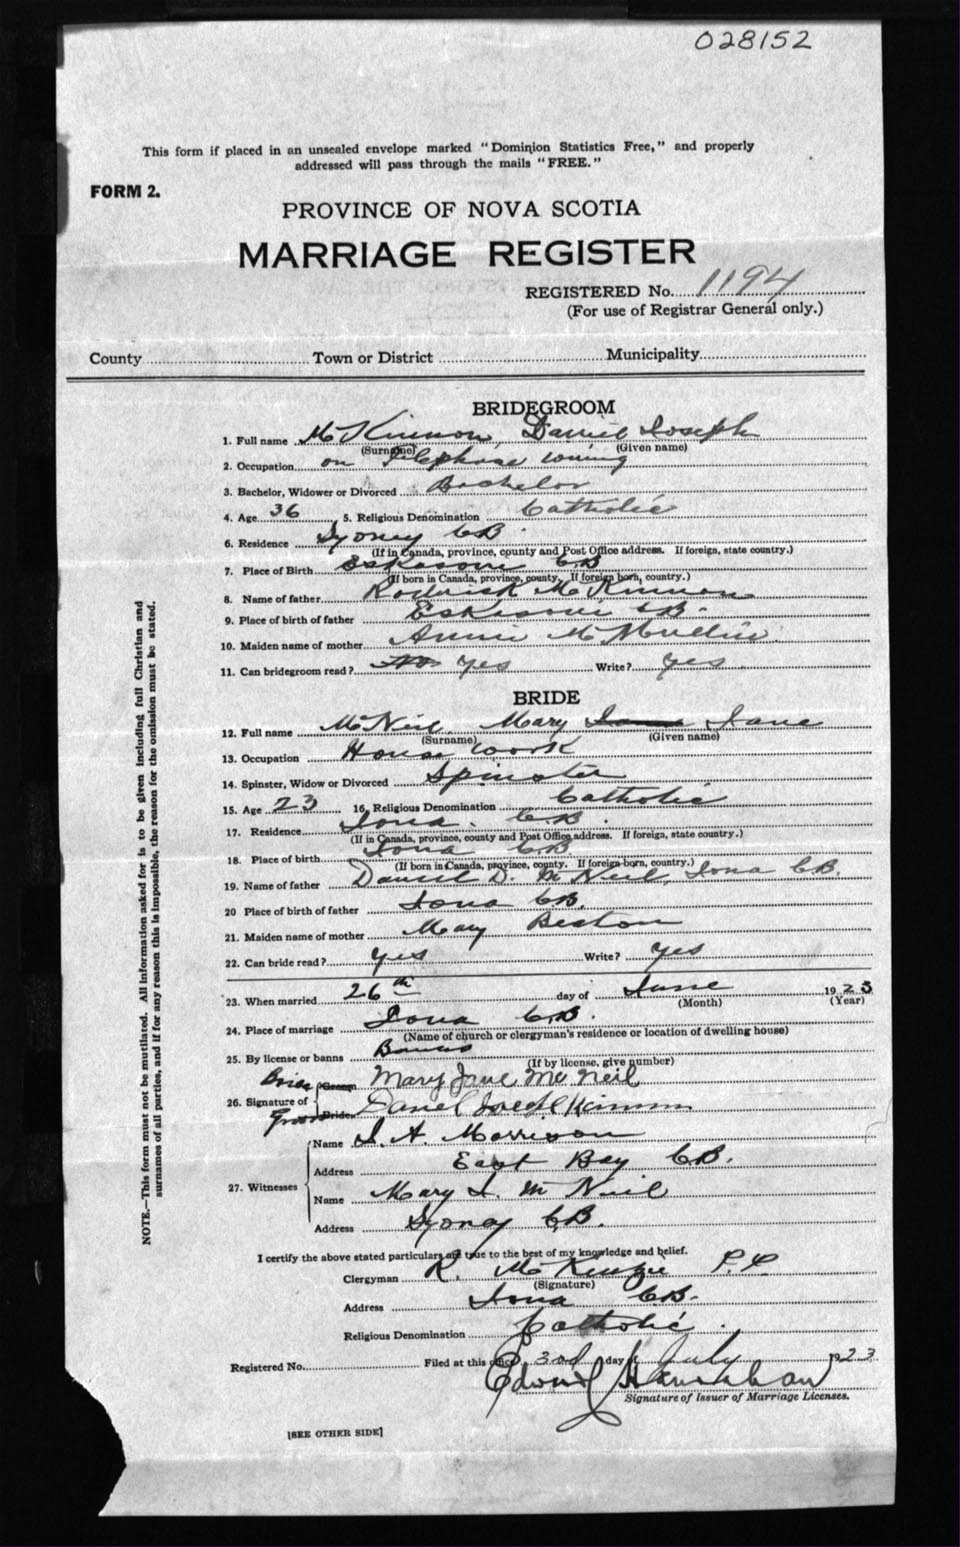 028152
This form if placed in an unsealed envelope marked "Dominion Statistics Free," and properly
addressed will pass through the mails "FREE."
FORM 2.
PROVINCE OF NOVA SCOTIA
MARRIAGE REGISTER
REGISTERED No. 1194
(For use of Registrar General only.)
County Town or District Municipality
BRIDEGROOM
1. Full name McKinnon, Daniel Joseph
(Surname) (Given name)
2. Occupation on Telephone wiring
3. Bachelor, Widower or Divorced Bachelor
4. Age 36 5. Religious Denomination Catholic
6. Residence Sydney C.B.
(If in Canada, province, county and Post Office address. If foreign, state country.)
7. Place of Birth Eskasoni C.B
(If born in Canada, province, county. If foreign born, country.)
8. Name of father Roderick McKinnon
9. Place of birth of father Eskasoni C.B.
10. Maiden name of mother Annie McMullin
11. Can bridegroom read? No yes Write? yes
BRIDE
12. Full name McNeil, Mary Jane
(Surname) (Given name)
13. Occupation House work
14. Spinster, Widow or Divorced Spinster
15. Age 23 16. Religious Denomination Catholic
17. Residence Iona. C.B.
(If in Canada, province, county and Post Office address. If foreign, state country.)
18. Place of birth Iona C.B
(If born in Canada, province, county. If foreign-born, country.)
19. Name of father Daniel D. McNeil, Iona C.B.
20 Place of birth of father Iona C.B.
21. Maiden name of mother Mary Beaton
22. Can bride read? yes Write? yes
23. When married 26th day of June 1923
(Month) (Year)
24. Place of marriage Iona C.B.
(Name of church or clergyman's residence or location of dwelling house)
25. By license or banns Banns
(If by license, give number)
Bride Groom Mary Jane McNeil
26. Signature of
Groom Bride Daniel
27. Witnesses
Name J. A. Morrison
Address East Bay C.B.
Name Mary J. McNeil
Address Sydney C.B.
I certify the above stated particulars are true to the best of my knowledge and belief.
Clergyman R. McKenzie P.P.
(Signature)
Address Iona C.B.
Religious Denomination Catholic.
Registered No. Filed at this office 3rd day of July 1923
Edward
Signature of Issuer of Marriage Licenses.
[SEE OTHER SIDE]
NOTE.—This form must not be mutilated. All information asked for is to be given including full Christian and
surnames of all parties, and if for any reason this is impossible, the reason for the omission must be stated.